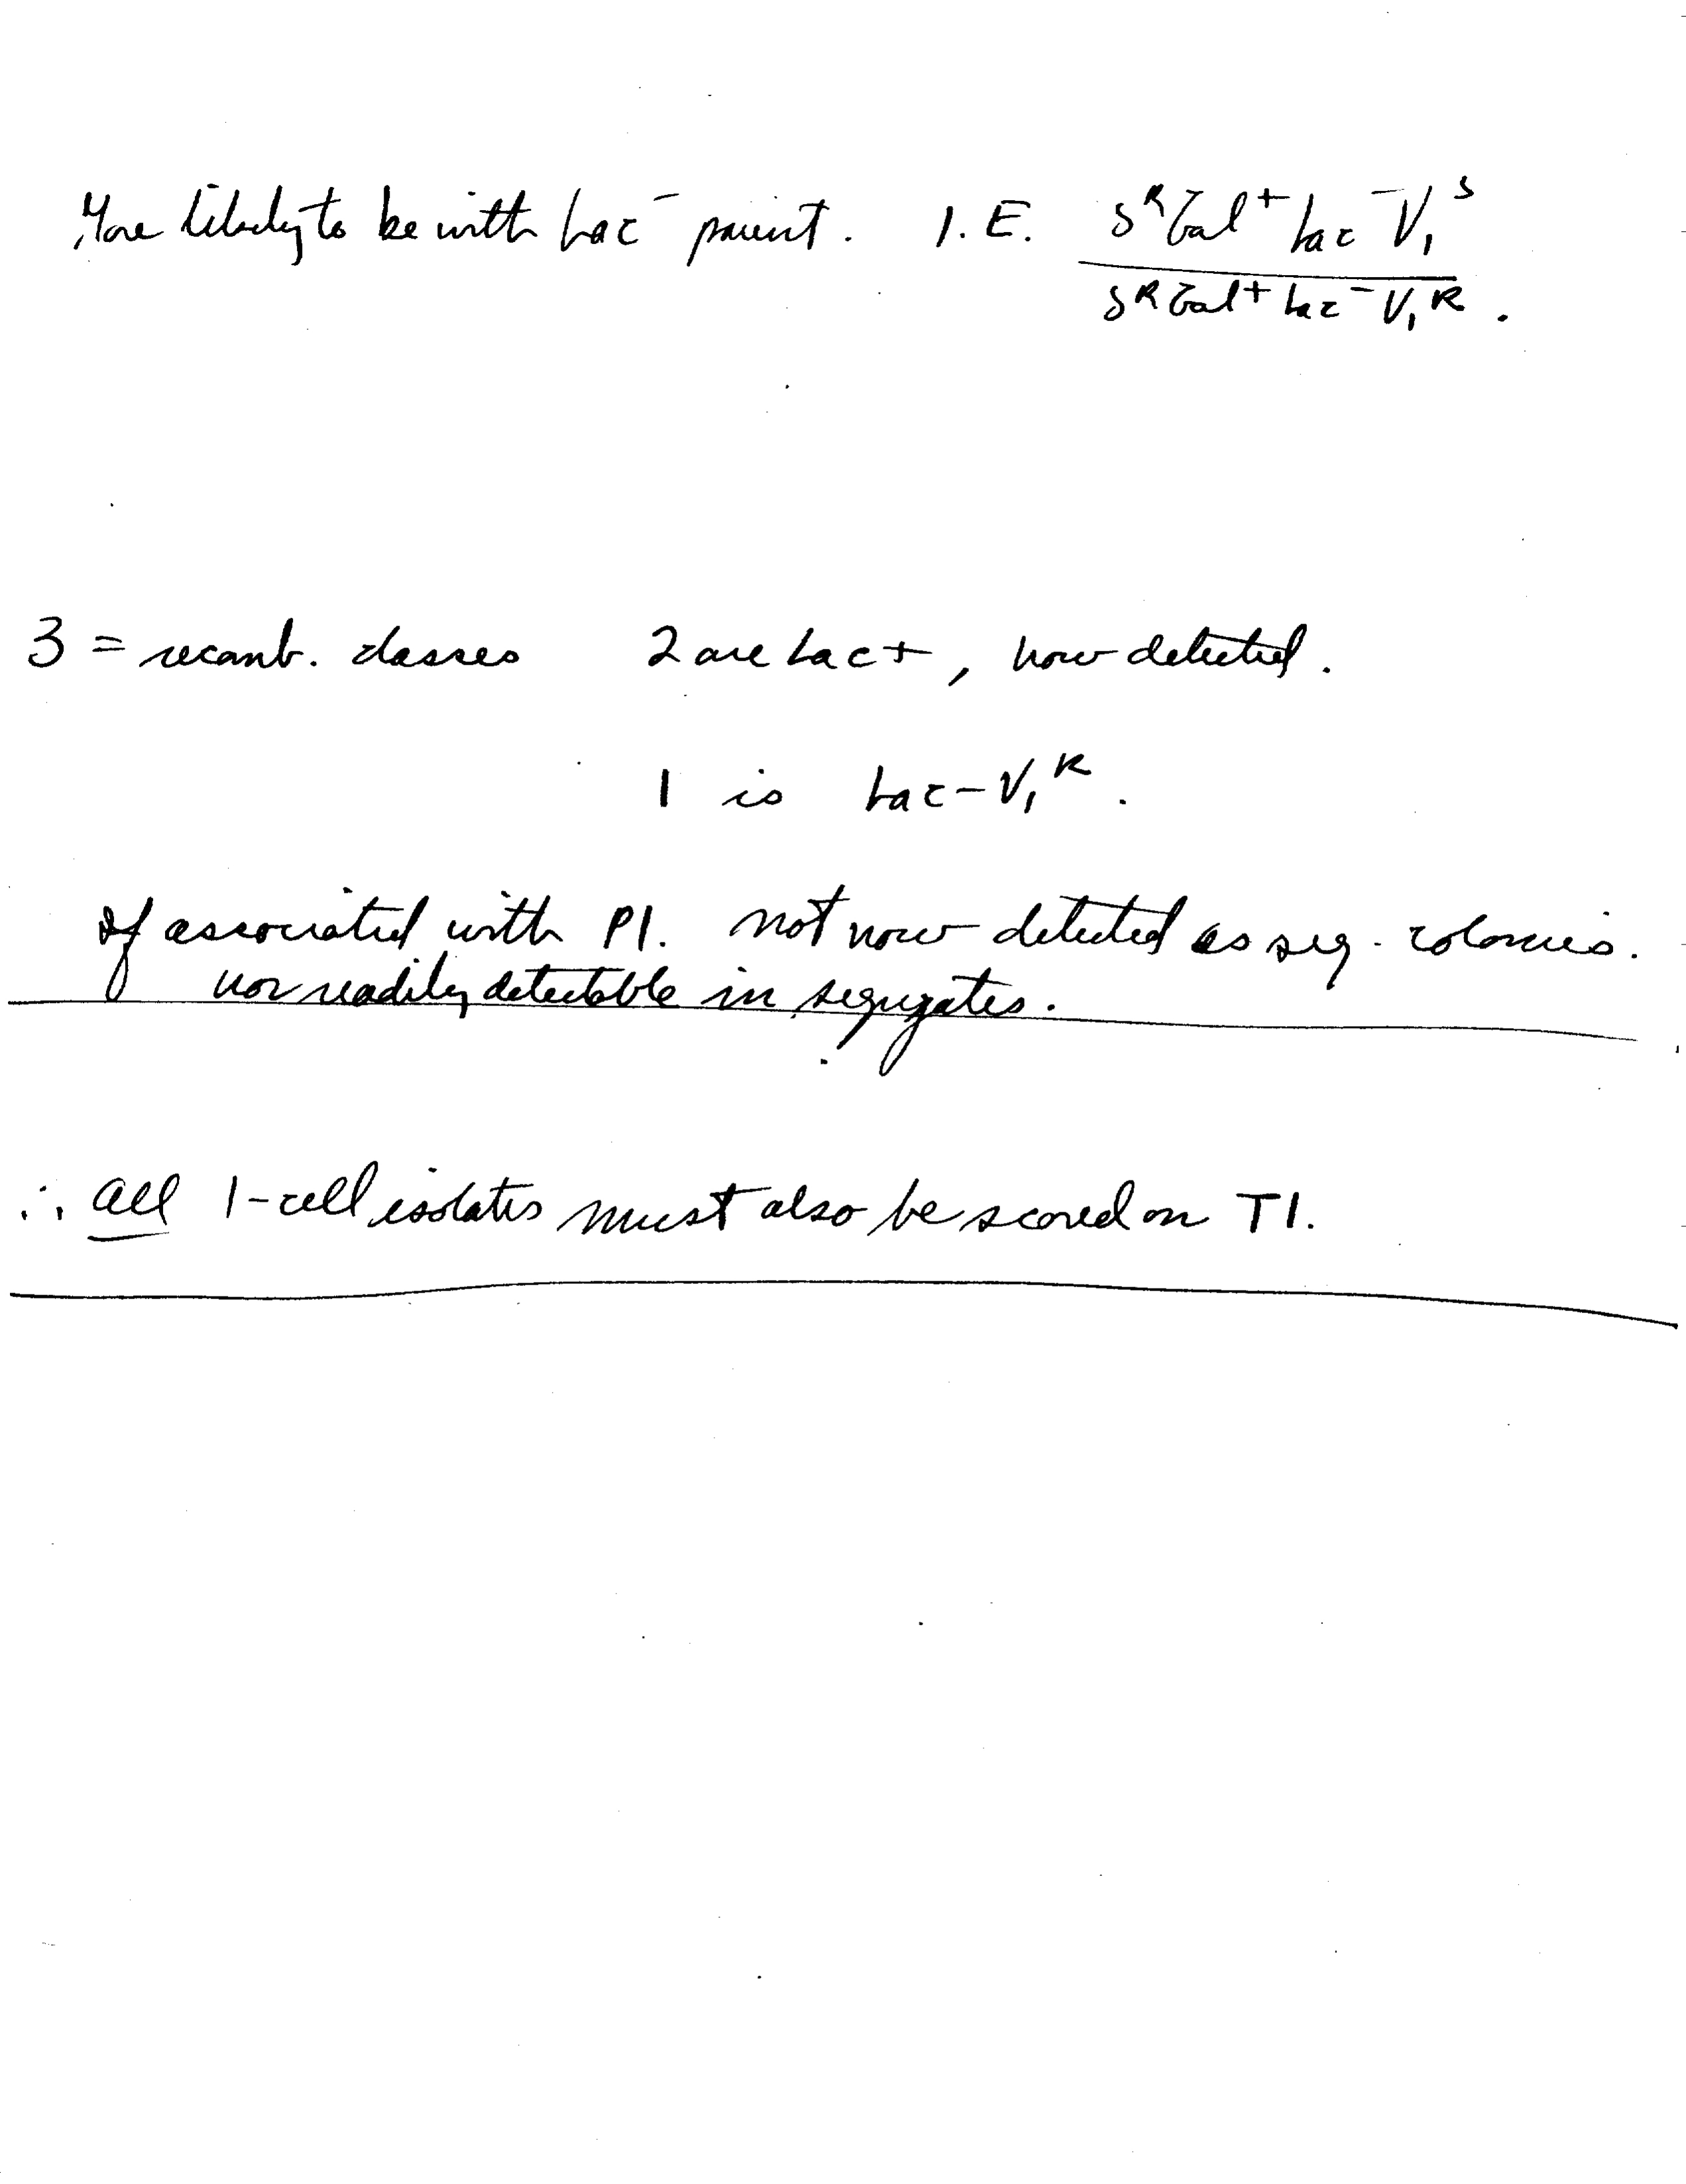 More likely to be with Lac⁻ parent. I.E. Sᴿ Gal⁺ Lac⁻ V₁ˢ
Sᴿ Gal+ Lac⁻ V₁ᴿ.
3 = recomb. classes 2 are Lac+, now detected.
1 is Lac-V₁ᴿ.
If associated with P1. not now detected as seg. colonies.
nor readily detectable in segregates.
∴ All 1-cell isolates must also be scored on T1.